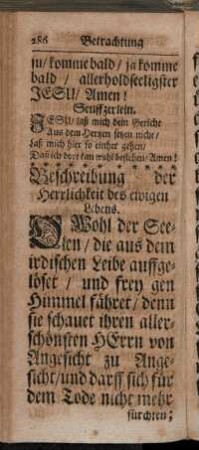 286 Betrachtung
ju/ komme bald/ ja komme
bald / allerholdseeligster
JESU/ Amen!
Seuffzerlein.
JESU/ laß mich dein Gerichte
Aus dem Hertzen setzen nicht/
Laß mich hier so einher gehen/
Daß ich dort kan wohl bestehen/ Amen!
Beschreibung der
Herrlichkeit des ewigen
Lebens.
O Wohl der See-
len / die aus dem
irdischen Leibe auffge-
löset / und frey gen
Himmel fähret/ denn
sie schauet ihren aller-
schönsten HErrn von
Angesicht zu Ange-
sicht/ und darff sich für
dem Tode nicht mehr
fürchten;